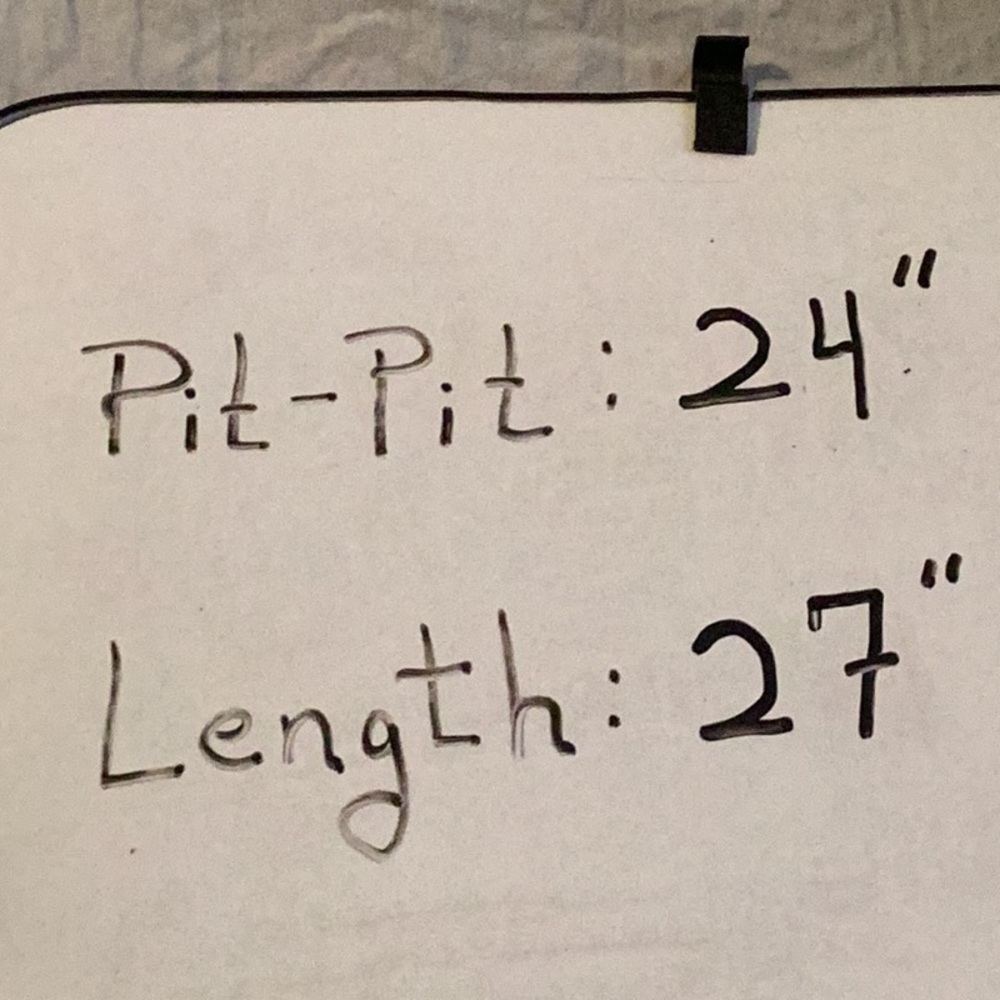 Pit-Pit: 24"
Length: 27"